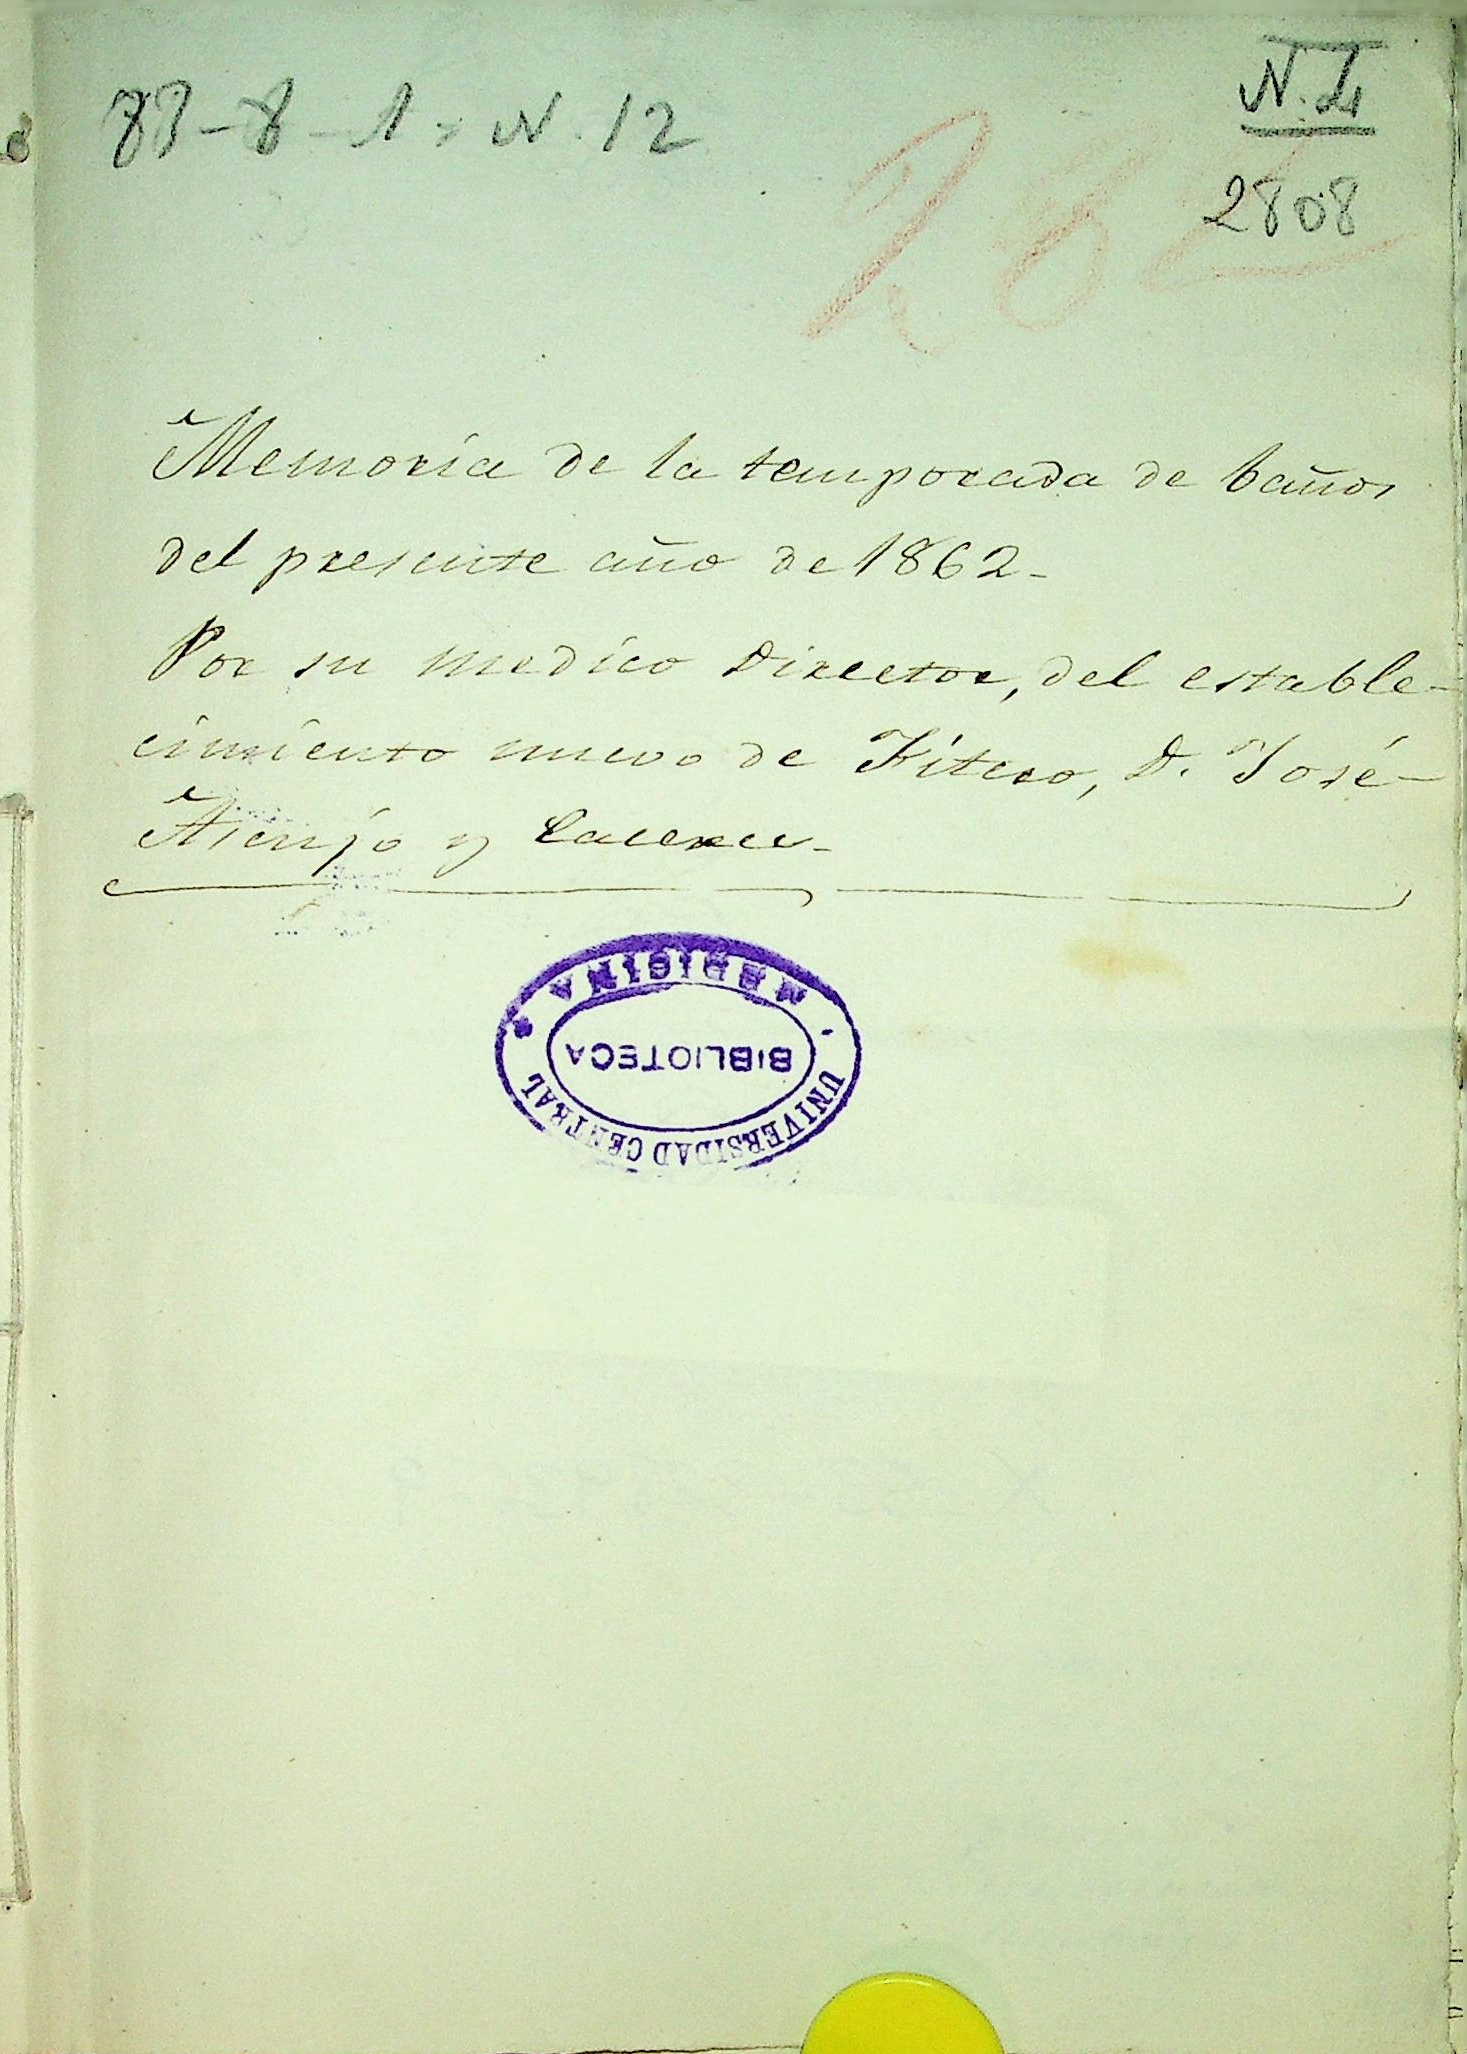 83-8-1=N.12
N.I.
2808
262
Memoria de la temporada de baños
del presente año de 1862-
Por su medico Director, del estable-
cimiento nuevo de Fitero, D. José-
Asenjo y
MEDICINA
BIBLIOTECA
UNIVERSIDAD CENTRAL